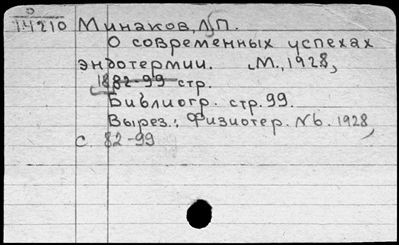 14210 Минаков, Л.П.
О современных успехах
эндотермии. М., 1928,
1882-99 стр.
Библиогр. стр. 99.
Вырез.: Физиотер. №6. 1928,
с. 82-99